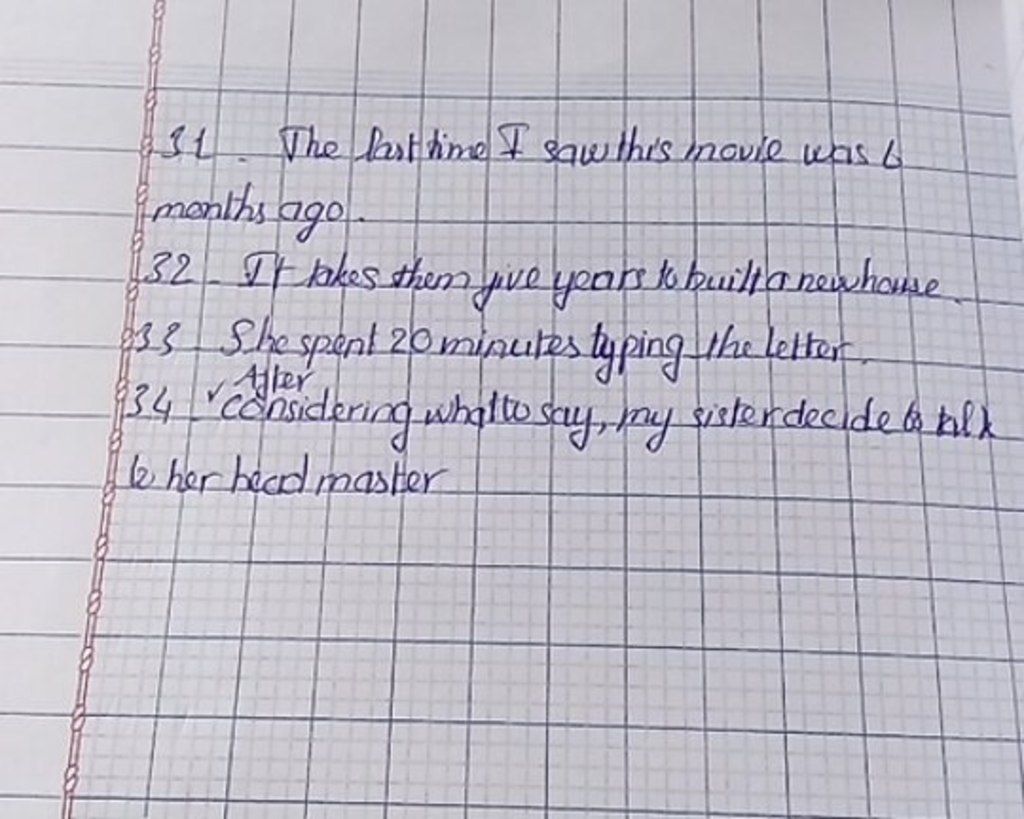 31. The last time I saw this movie was 6
months ago.
32. It takes them five years to built a new house.
33 She spent 20 minutes typing the letter.
After
34 ✓considering what to say, my sister decide to talk
to her head master